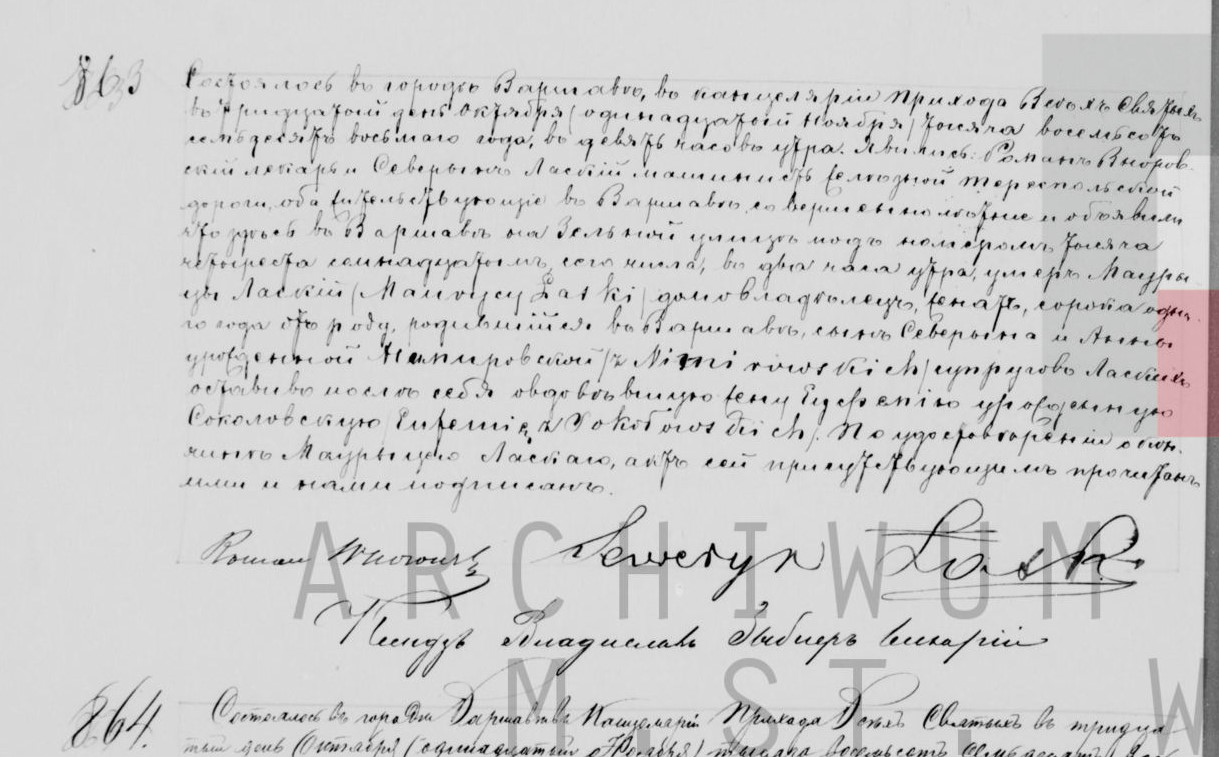 863
Состоялось въ городѣ Варшавѣ, въ канцеляріи прихода Всѣхъ Святыхъ
въ тридцатый день Октября / одинадцатый Ноября / тысяча восемьсотъ
семьдесятъ восьмаго года, въ девять часовъ утра. Явились: Романъ
скій лекарь и Северынъ Ласкій машинистъ желѣзной Тереспольской
дороги, оба жительствующіе въ Варшавѣ, совершеннолѣтніе и объявили
что здѣсь въ Варшавѣ на Зельной улицѣ подъ номеромъ тысяча
четыреста семнадцатымъ, сего числа, въ два часа утра, умеръ Мауры
цы Ласкій / Maurycy Łaski / домовладѣлецъ, женатъ, сорока одн
го года отъ роду, родившійся въ Варшавѣ, сынъ Северына и Анны
урожденной / z Nimirowskich / супруговъ Ласкихъ
оставивъ послѣ себя овдовѣвшую жену Ефемію урожденную
Соколовскую / Eufemię z Sokołowskich /. По удостовѣреніи о кон
чинѣ Маурыцего Ласкаго, актъ сей присутствующимъ прочитанъ
ими и нами подписанъ.
Roman Seweryn Łaski
Ксендзъ Владиславъ викарій
ARCHIWUM
M. ST. W
864.
Состоялось въ городѣ Варшавѣ въ Канцеляріи Прихода Всѣхъ Святыхъ въ тридца-
тый день Октября (одинадцатый Ноября) тысяча восемьсотъ семьдесятъ